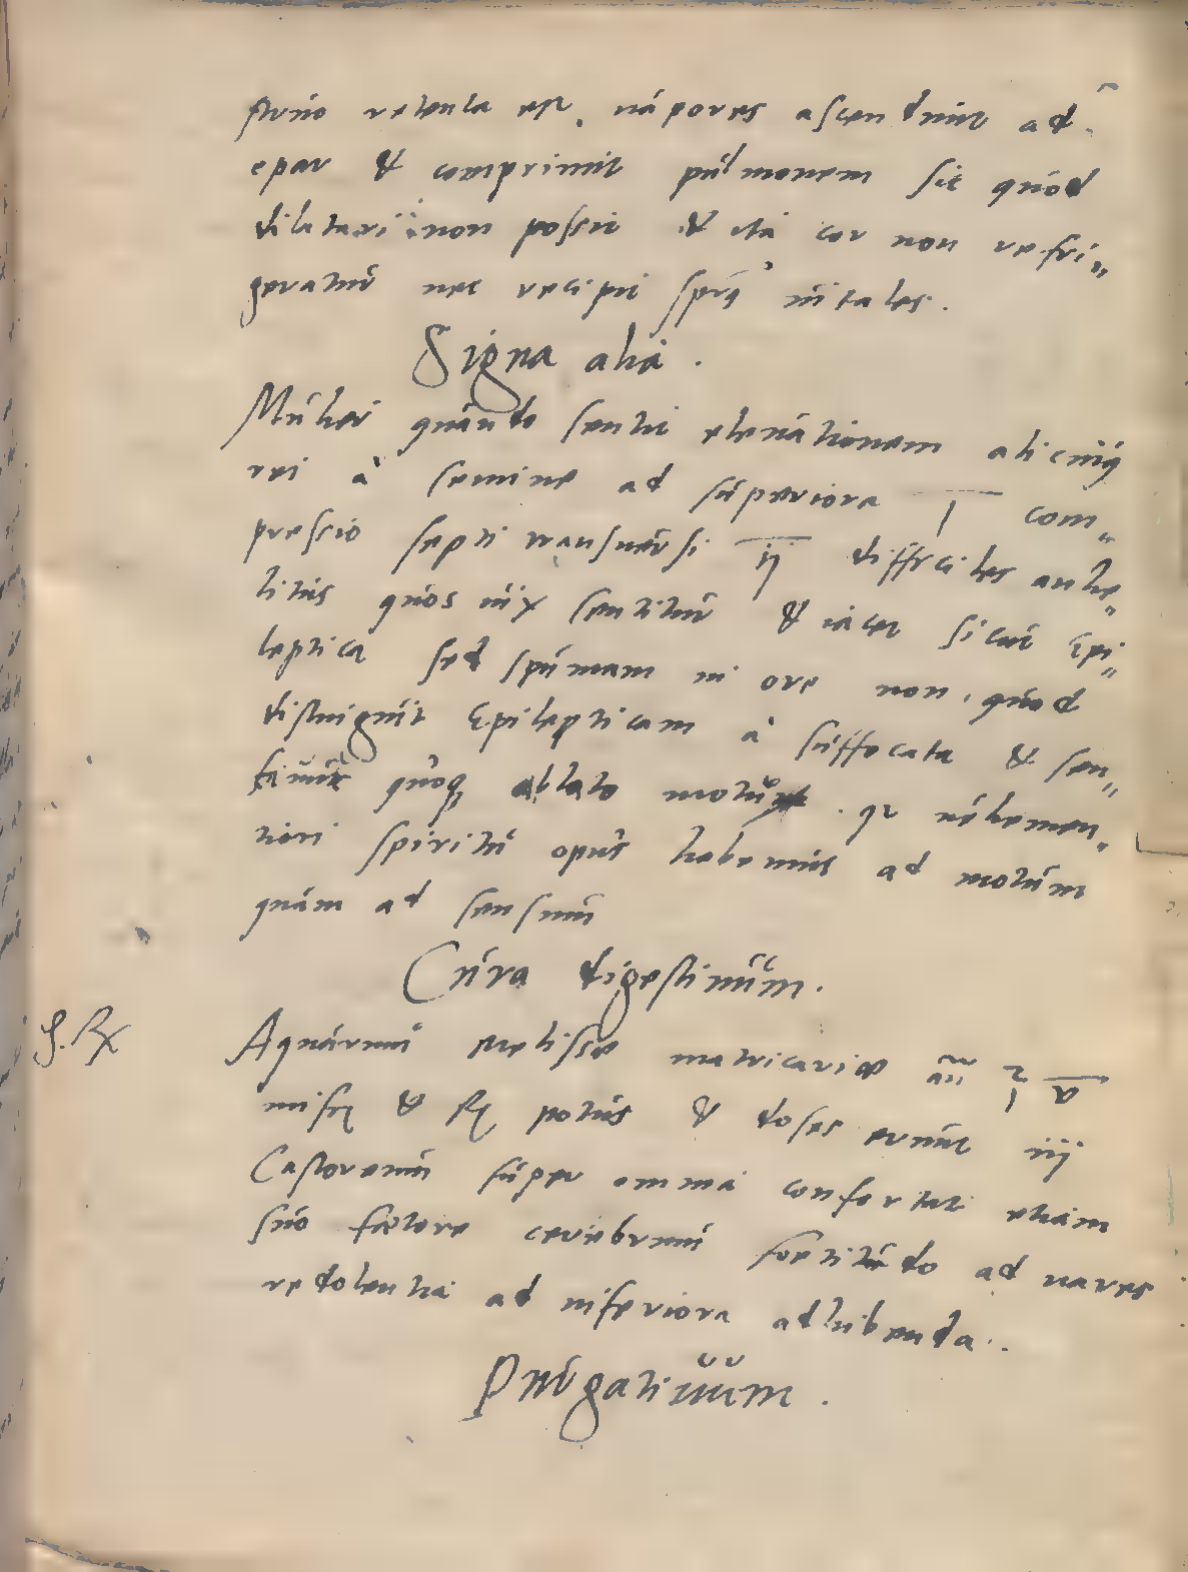 struo retenta est, uapores ascendunt ad
epar & comprimit pulmonem sic quod
dilatari non possit & ita cor non refri„
geratur nec recipit spūs uitales.
Signa alia.
Mulier quando sentit eleuationem alicuiq
rei à semine ad superiora I com„
pressio septi transuersi II difficiles anhe„
litus quos uix sentitur & iacet sicut Epi„
leptica sed spumam in ore non, quod
distinguit Epilepticam à suffocata & sen„
quoq ablato motu . qr uehemen„
tiori spiritu opus habemus ad motum
quam ad sensum
Cura digestiuum.
S. Rx
Aquarum Melissæ matricariæ an ℥ v
misq & Rx potus & doses erunt iij
Castoreum super omnia confortat etiam
suo fætore cerebrum foetitudo ad nares
redolentia ad inferiora adhibenda.
Purgatiuum.